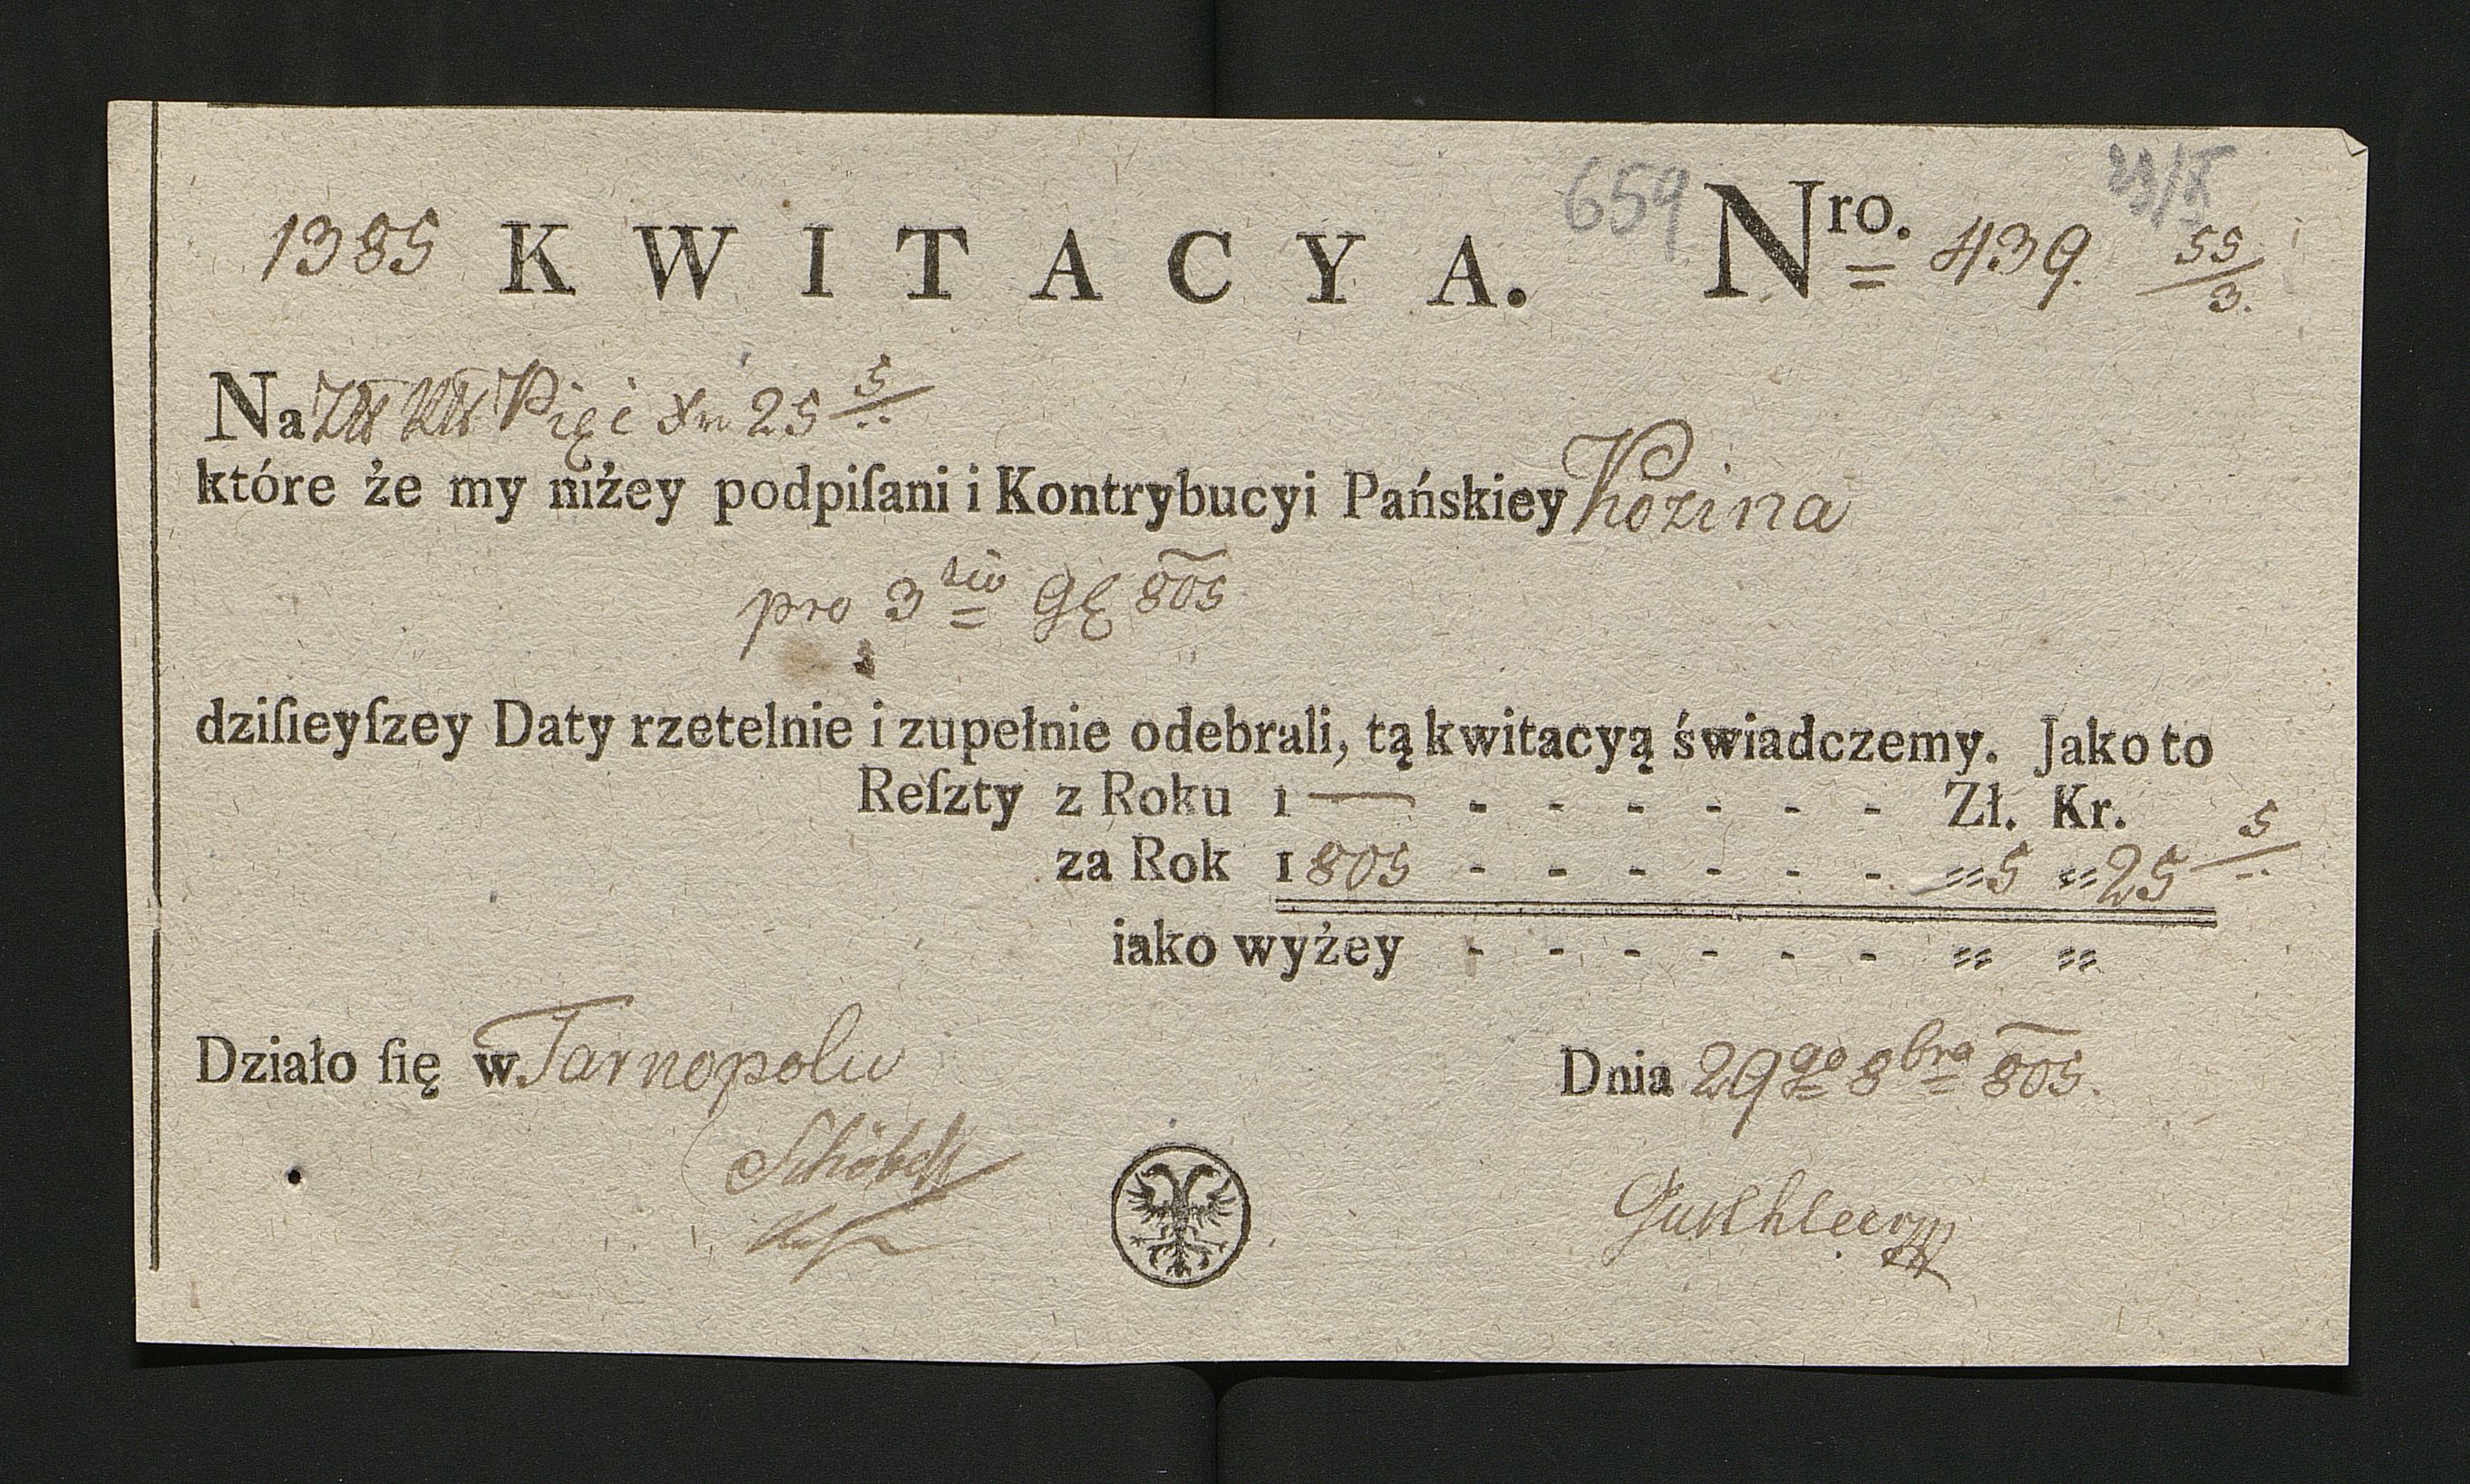 659
1385 KWITACYA. Nro. 439. 55/3.
Na Pięć xr 25 5/
które że my niżey podpiſani i Kontrybucyi Pańskiey Kozina
pro 3tio 805
dziſieyſzey Daty rzetelnie i zupełnie odebrali, tą kwitacyą świadczemy. Jako to
Reſzty z Roku 1— - - - - - - Zł. Kr.
za Rok 1805 - - - - - - „5 „25 5/
iako wyżey - - - - - - „ „
Działo ſię w Tarnopolu Dnia 29go 8bra 805.